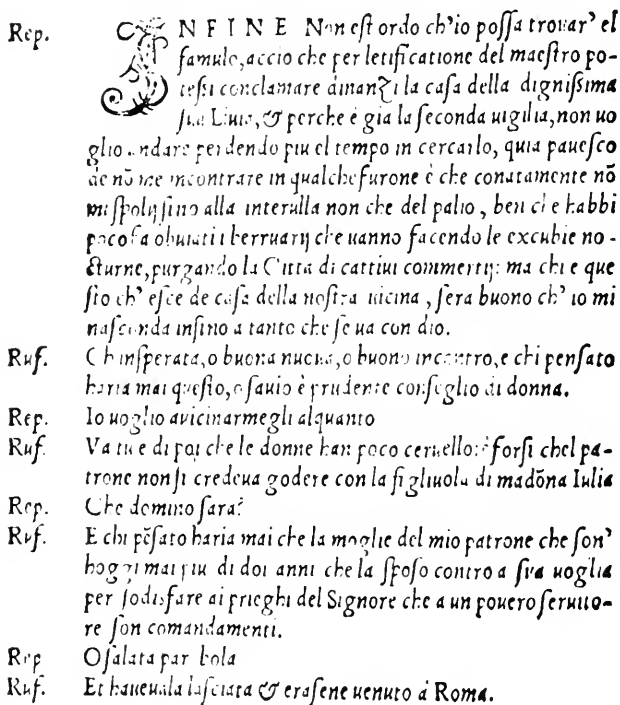 Rep. INFINE Non est ordo ch'io possa trouar' el
famulo, accio che per letificatione del maestro po-
tessi conclamare auanzi la casa della dignissima
sua Liuia, & perche è gia la seconda uigilia, non uo
glio andare perdendo piu el tempo in cercarlo, quia pauesco
de nō me incontrare in qualche furone è che conatamente nō
mi spolij sino alla interulla non che del palio, ben che habbi
poco fa obuiati i berruarij che uanno facendo le excubie no-
cturne, purgando la Citta di cattiui commertij: ma chi e que
sto ch' esce de casa della nostra uicina, sera buono ch' io mi
nasconda insino a tanto che se ua con dio.
Ruf. O insperata, o buona nuoua, o buono incontro, e chi pensato
haria mai questo, o sauio è prudente conseglio di donna.
Rep. Io uoglio auicinarmegli alquanto
Ruf. Va tu e di poi che le donne han poco ceruello: è forsi chel pa-
trone non si credeua godere con la figliuola di madōna Iulia
Rep. Che domino sara?
Ruf. E chi pēsato haria mai che la moglie del mio patrone che son'
hoggi mai piu di doi anni che la sposo contro a sua uoglia
per sodisfare ai prieghi del Signore che a un pouero seruito-
re son comandamenti.
Rep O salata parbola
Ruf. Et haueuala lasciata & erasene uenuto à Roma.